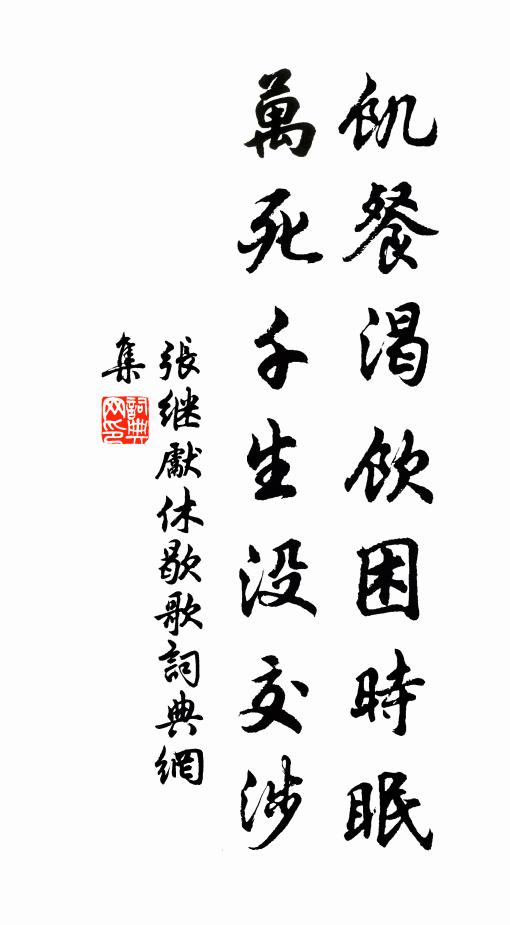 飢餐渴飲困時眠
萬死千生没交涉
張继獻休歇歌詞典網
集
詞典網印